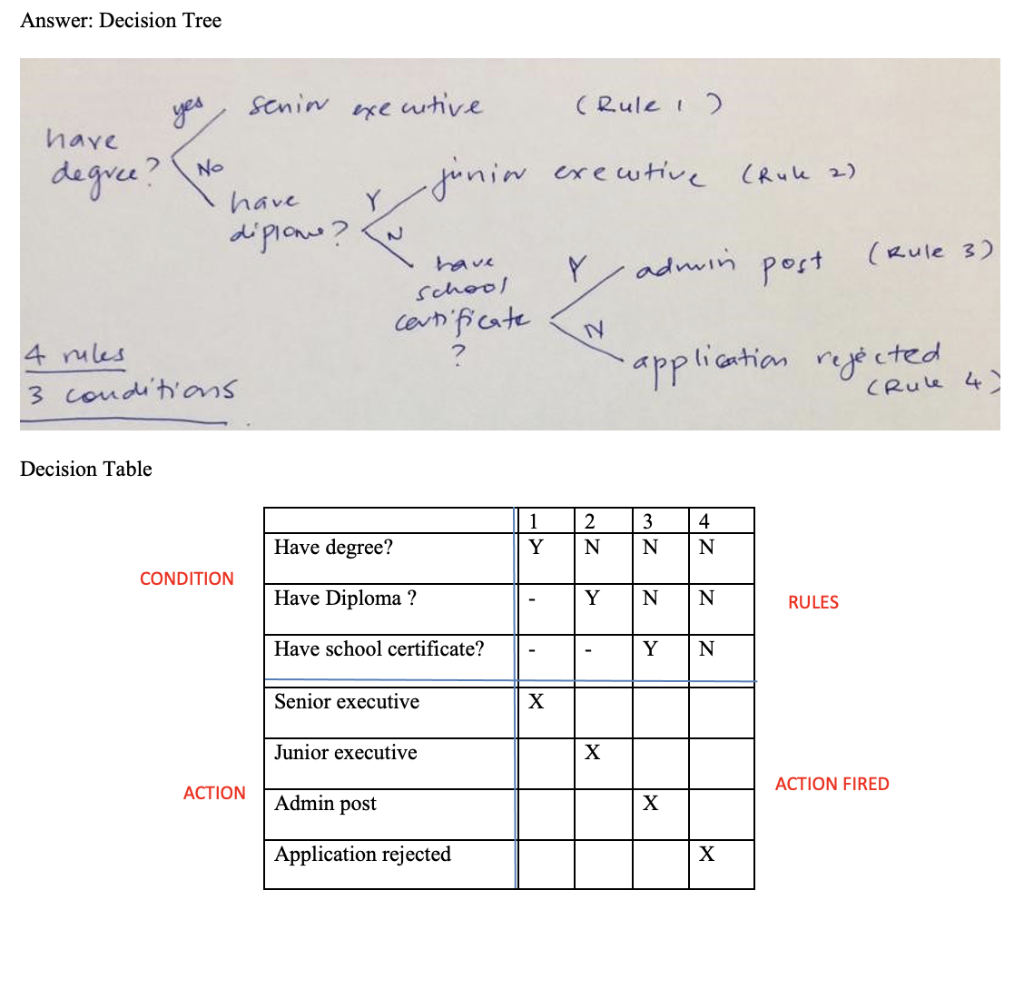 Answer: Decision Tree
yes senior executive (Rule 1)
have
degree? No
junior executive (Rule 2)
have Y
diploma? N
have Y admin post (Rule 3)
school
certificate N
?
4 rules
application rejected
3 conditions
(Rule 4)
Decision Table
1 2 3 4
Have degree? Y N N N
CONDITION
Have Diploma ? - Y N N
RULES
Have school certificate? - - Y N
Senior executive X
Junior executive X
ACTION FIRED
ACTION
Admin post X
Application rejected X